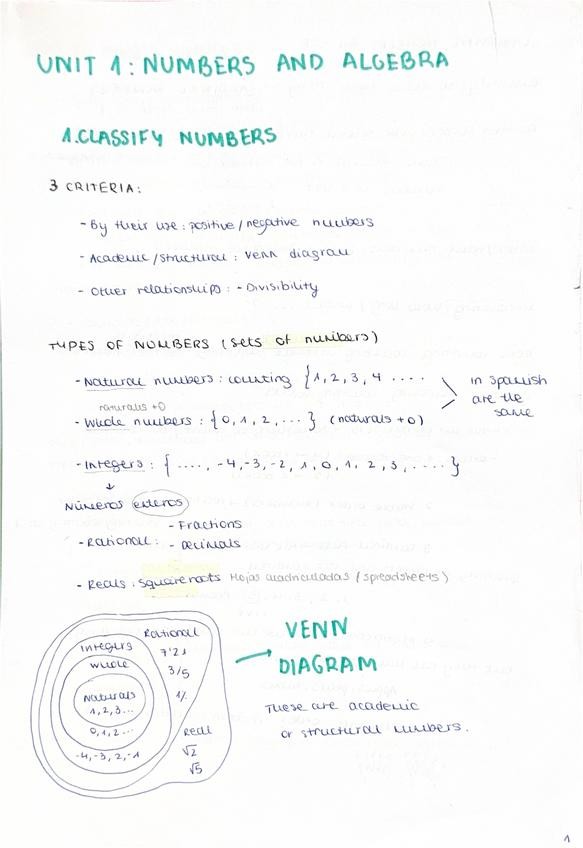 UNIT 1: NUMBERS AND ALGEBRA
1. CLASSIFY NUMBERS
3 CRITERIA:
- By their use: positive/negative numbers
- Academic/structural: Venn diagram
- Other relationships: - Divisibility
TYPES OF NUMBERS (sets of numbers)
- Natural numbers: counting {1, 2, 3, 4 ....
in Spanish are the same
naturals +0
- Whole numbers: {0, 1, 2, ...} (naturals +0)
- Integers: {...., -4, -3, -2, 1, 0, 1, 2, 3, .....}
↓
NÚMEROS enteros
- Fractions
- Rational: - Decimals
- Reals: square roots Hojas cuadriculadas (spreadsheets)
Rational
Integers
7'21
Whole
3/5
Naturals
1%
1, 2, 3...
0, 1, 2...
Real
-4, -3, 2, -1
√2
√5
VENN
DIAGRAM
These are academic
or structural numbers.
1